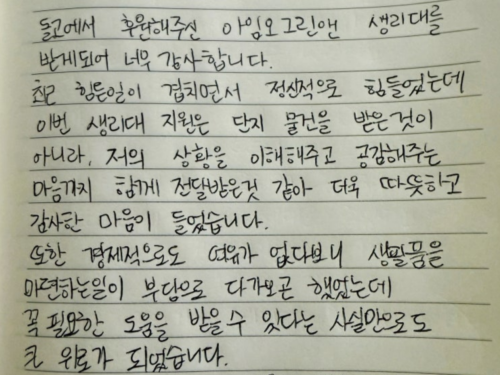 돌고에서 후원해주신 아임오그린앤 생리대를
받게되어 너무 감사합니다.
최근 힘든일이 겹치면서 정신적으로 힘들었는데
이번 생리대 지원은 단지 물건을 받은것이
아니라, 저의 상황을 이해해주고 공감해주는
마음까지 함께 전달받은것 같아 더욱 따뜻하고
감사한 마음이 들었습니다.
또한 경제적으로도 여유가 없다보니 생필품을
마련하는일이 부담으로 다가오곤 했었는데
꼭 필요한 도움을 받을 수 있다는 사실만으로도
큰 위로가 되었습니다.